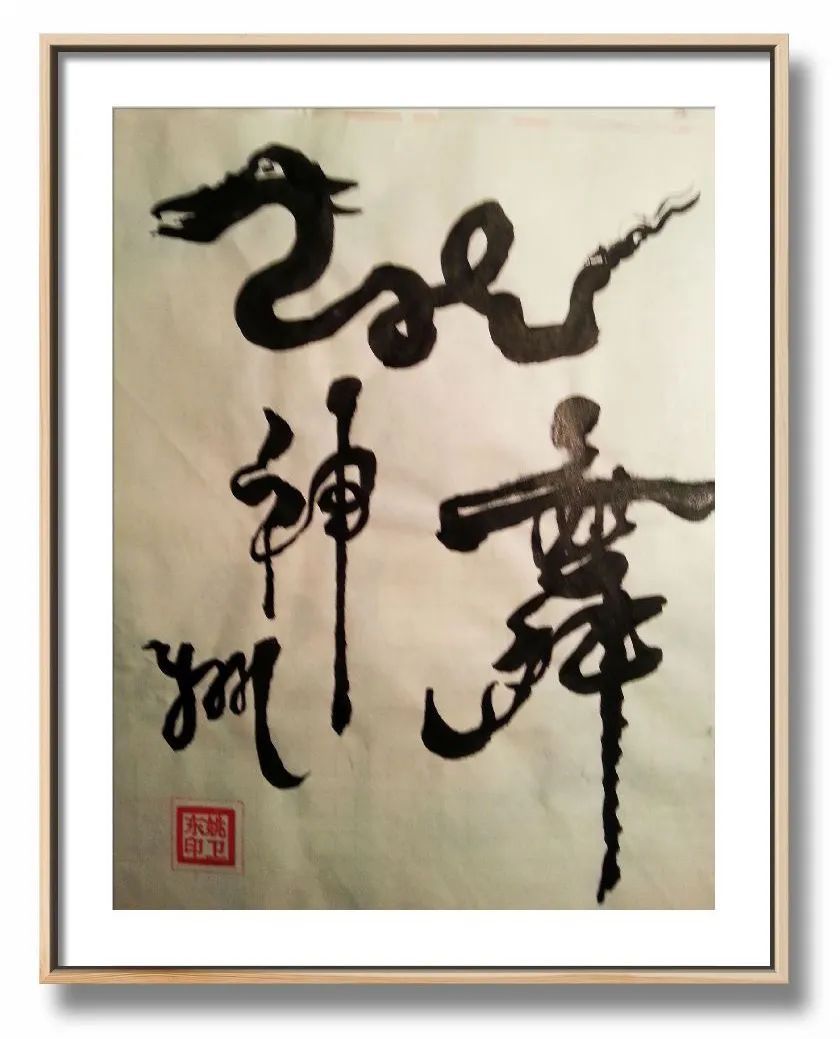 舞
神
州
姚卫
东印